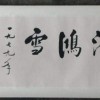 鴻雪
一九七九年